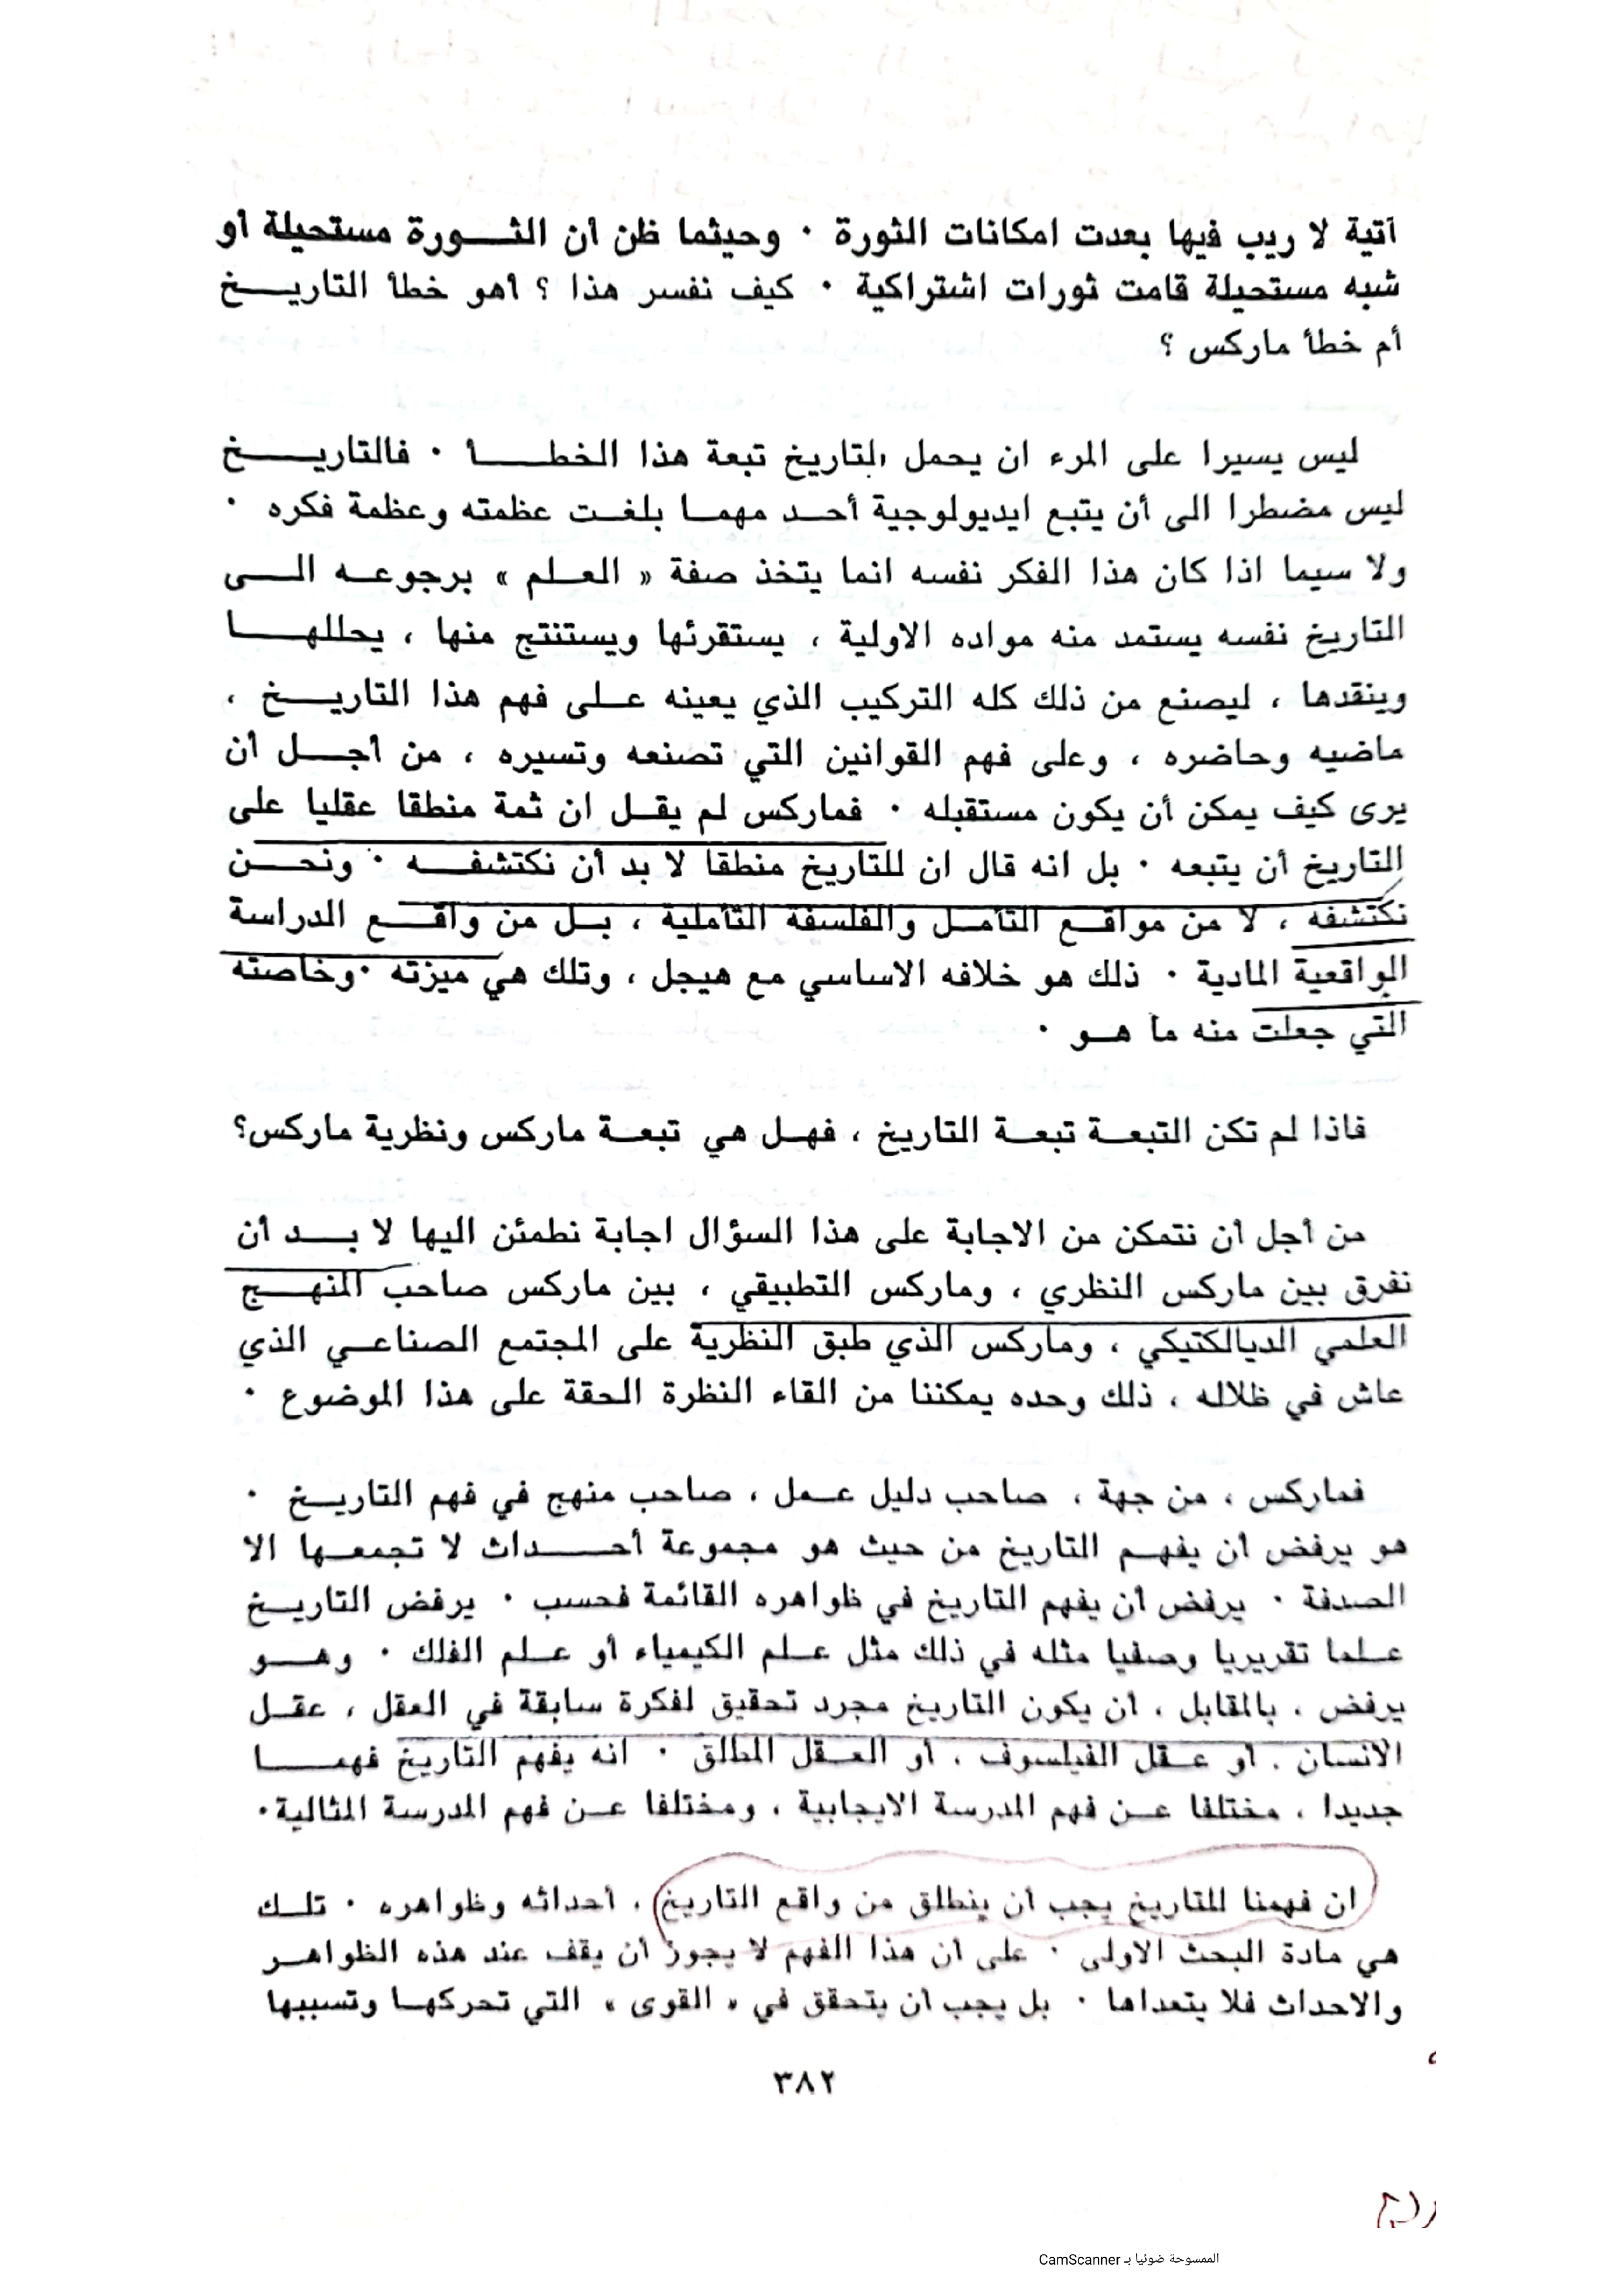 آتية لا ريب فيها بعدت امكانات الثورة ٠ وحيثما ظن أن الثـــورة مستحيلة أو
شبه مستحيلة قامت ثورات اشتراكية ٠ كيف نفسر هذا ؟ أهو خطأ التاريـــخ
أم خطأ ماركس ؟
ليس يسيرا على المرء ان يحمل التاريخ تبعة هذا الخطـــأ ٠ فالتاريـــخ
ليس مضطرا الى أن يتبع ايديولوجية أحـد مهمـا بلغـت عظمته وعظمة فكره ٠
ولا سيما اذا كان هذا الفكر نفسه انما يتخذ صفة « العـلم » برجوعـه الـى
التاريخ نفسه يستمد منه مواده الاولية ، يستقرئها ويستنتج منها ، يحللهـــا
وينقدها ، ليصنع من ذلك كله التركيب الذي يعينه عـلى فهم هذا التاريـــخ ،
ماضيه وحاضره ، وعلى فهم القوانين التي تصنعه وتسيره ، من أجـــل أن
يرى كيف يمكن أن يكون مستقبله ٠ فماركس لم يقـل ان ثمة منطقا عقليا على
التاريخ أن يتبعه ٠ بل انه قال ان للتاريخ منطقا لا بد أن نكتشفـــه ٠ ونحـــن
نكتشفه ، لا من مواقـع التأمـل والفلسفة التأملية ، بـل من واقـــع الدراسة
الواقعية المادية ٠ ذلك هو خلافه الاساسي مع هيجل ، وتلك هي ميزته ٠وخاصته
التي جعلت منه ما هـو ٠
فاذا لم تكن التبعـة تبعـة التاريخ ، فهـل هي تبعـة ماركس ونظرية ماركس؟
من أجل أن نتمكن من الاجابة على هذا السؤال اجابة نطمئن اليها لا بـــد أن
نفرق بين ماركس النظري ، وماركس التطبيقي ، بين ماركس صاحب المنهـــج
العلمي الديالكتيكي ، وماركس الذي طبق النظرية على المجتمع الصناعـي الذي
عاش في ظلاله ، ذلك وحده يمكننا من القاء النظرة الحقة على هذا الموضوع ٠
فماركس ، من جهة ، صاحب دليل عـمل ، صاحب منهج في فهم التاريـخ ٠
هو يرفض أن يفهـم التاريخ من حيث هو مجموعة أحـــداث لا تجمعـها الا
الصدفة ٠ يرفض أن يفهم التاريخ في ظواهره القائمة فحسب ٠ يرفض التاريـخ
عـلما تقريريا وصفيا مثله في ذلك مثل عـلم الكيمياء أو عـلم الفلك ٠ وهـــو
يرفض ، بالمقابل ، أن يكون التاريخ مجرد تحقيق لفكرة سابقة في العقل ، عقـل
الانسان ، أو عـقل الفيلسوف ، أو العـقل المطلق ٠ انه يفهم التاريخ فهمـــا
جديدا ، مختلفا عـن فهم المدرسة الايجابية ، ومختلفا عـن فهم المدرسة المثالية٠
ان فهمنا للتاريخ يجب أن ينطلق من واقع التاريخ ، أحداثه وظواهره ٠ تلـك
هي مادة البحث الاولى ٠ على أن هذا الفهم لا يجوز أن يقف عند هذه الظواهـر
والاحداث فلا يتعداها ٠ بل يجب أن يتحقق في « القوى » التي تحركهـا وتسببها
٣٨٢
الممسوحة ضوئيا بـ CamScanner